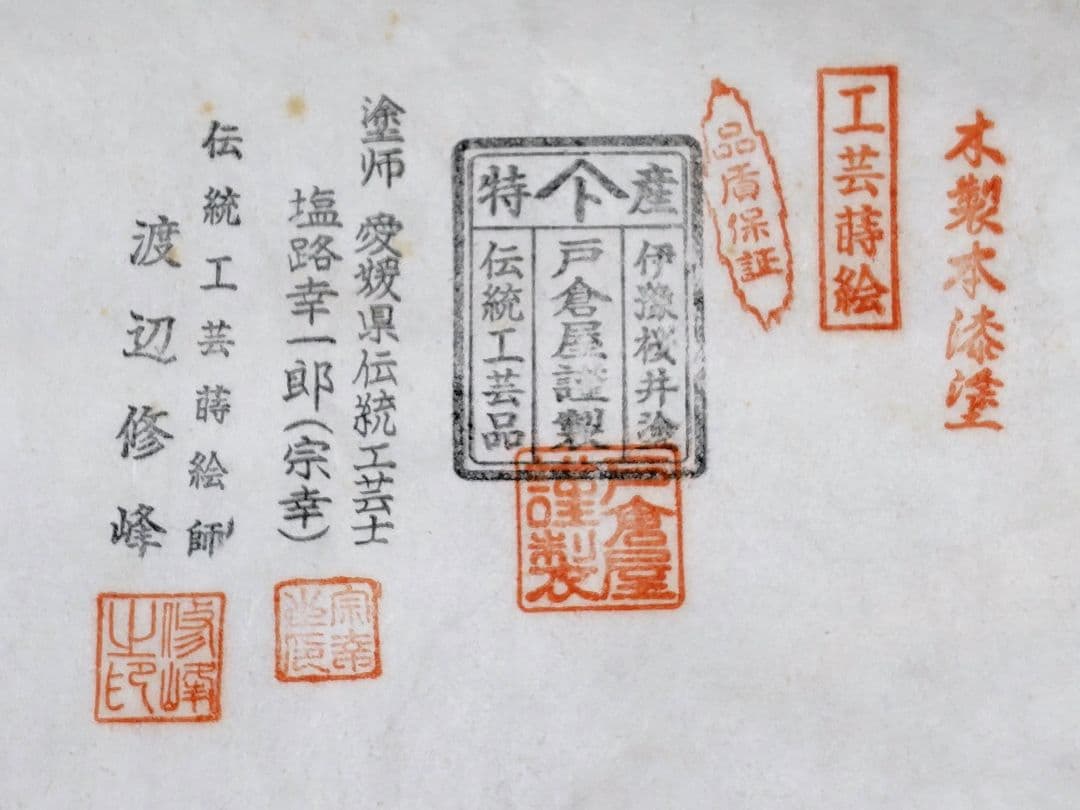 木製本漆塗
工芸蒔絵
品質保証
特産
伊豫桜井塗
戸倉屋謹製
伝統工芸品
戸倉屋
謹製
塗師 愛媛県伝統工芸士
塩路幸一郎(宗幸)
宗幸
伝統工芸蒔絵師
渡辺修峰
修峰
之印